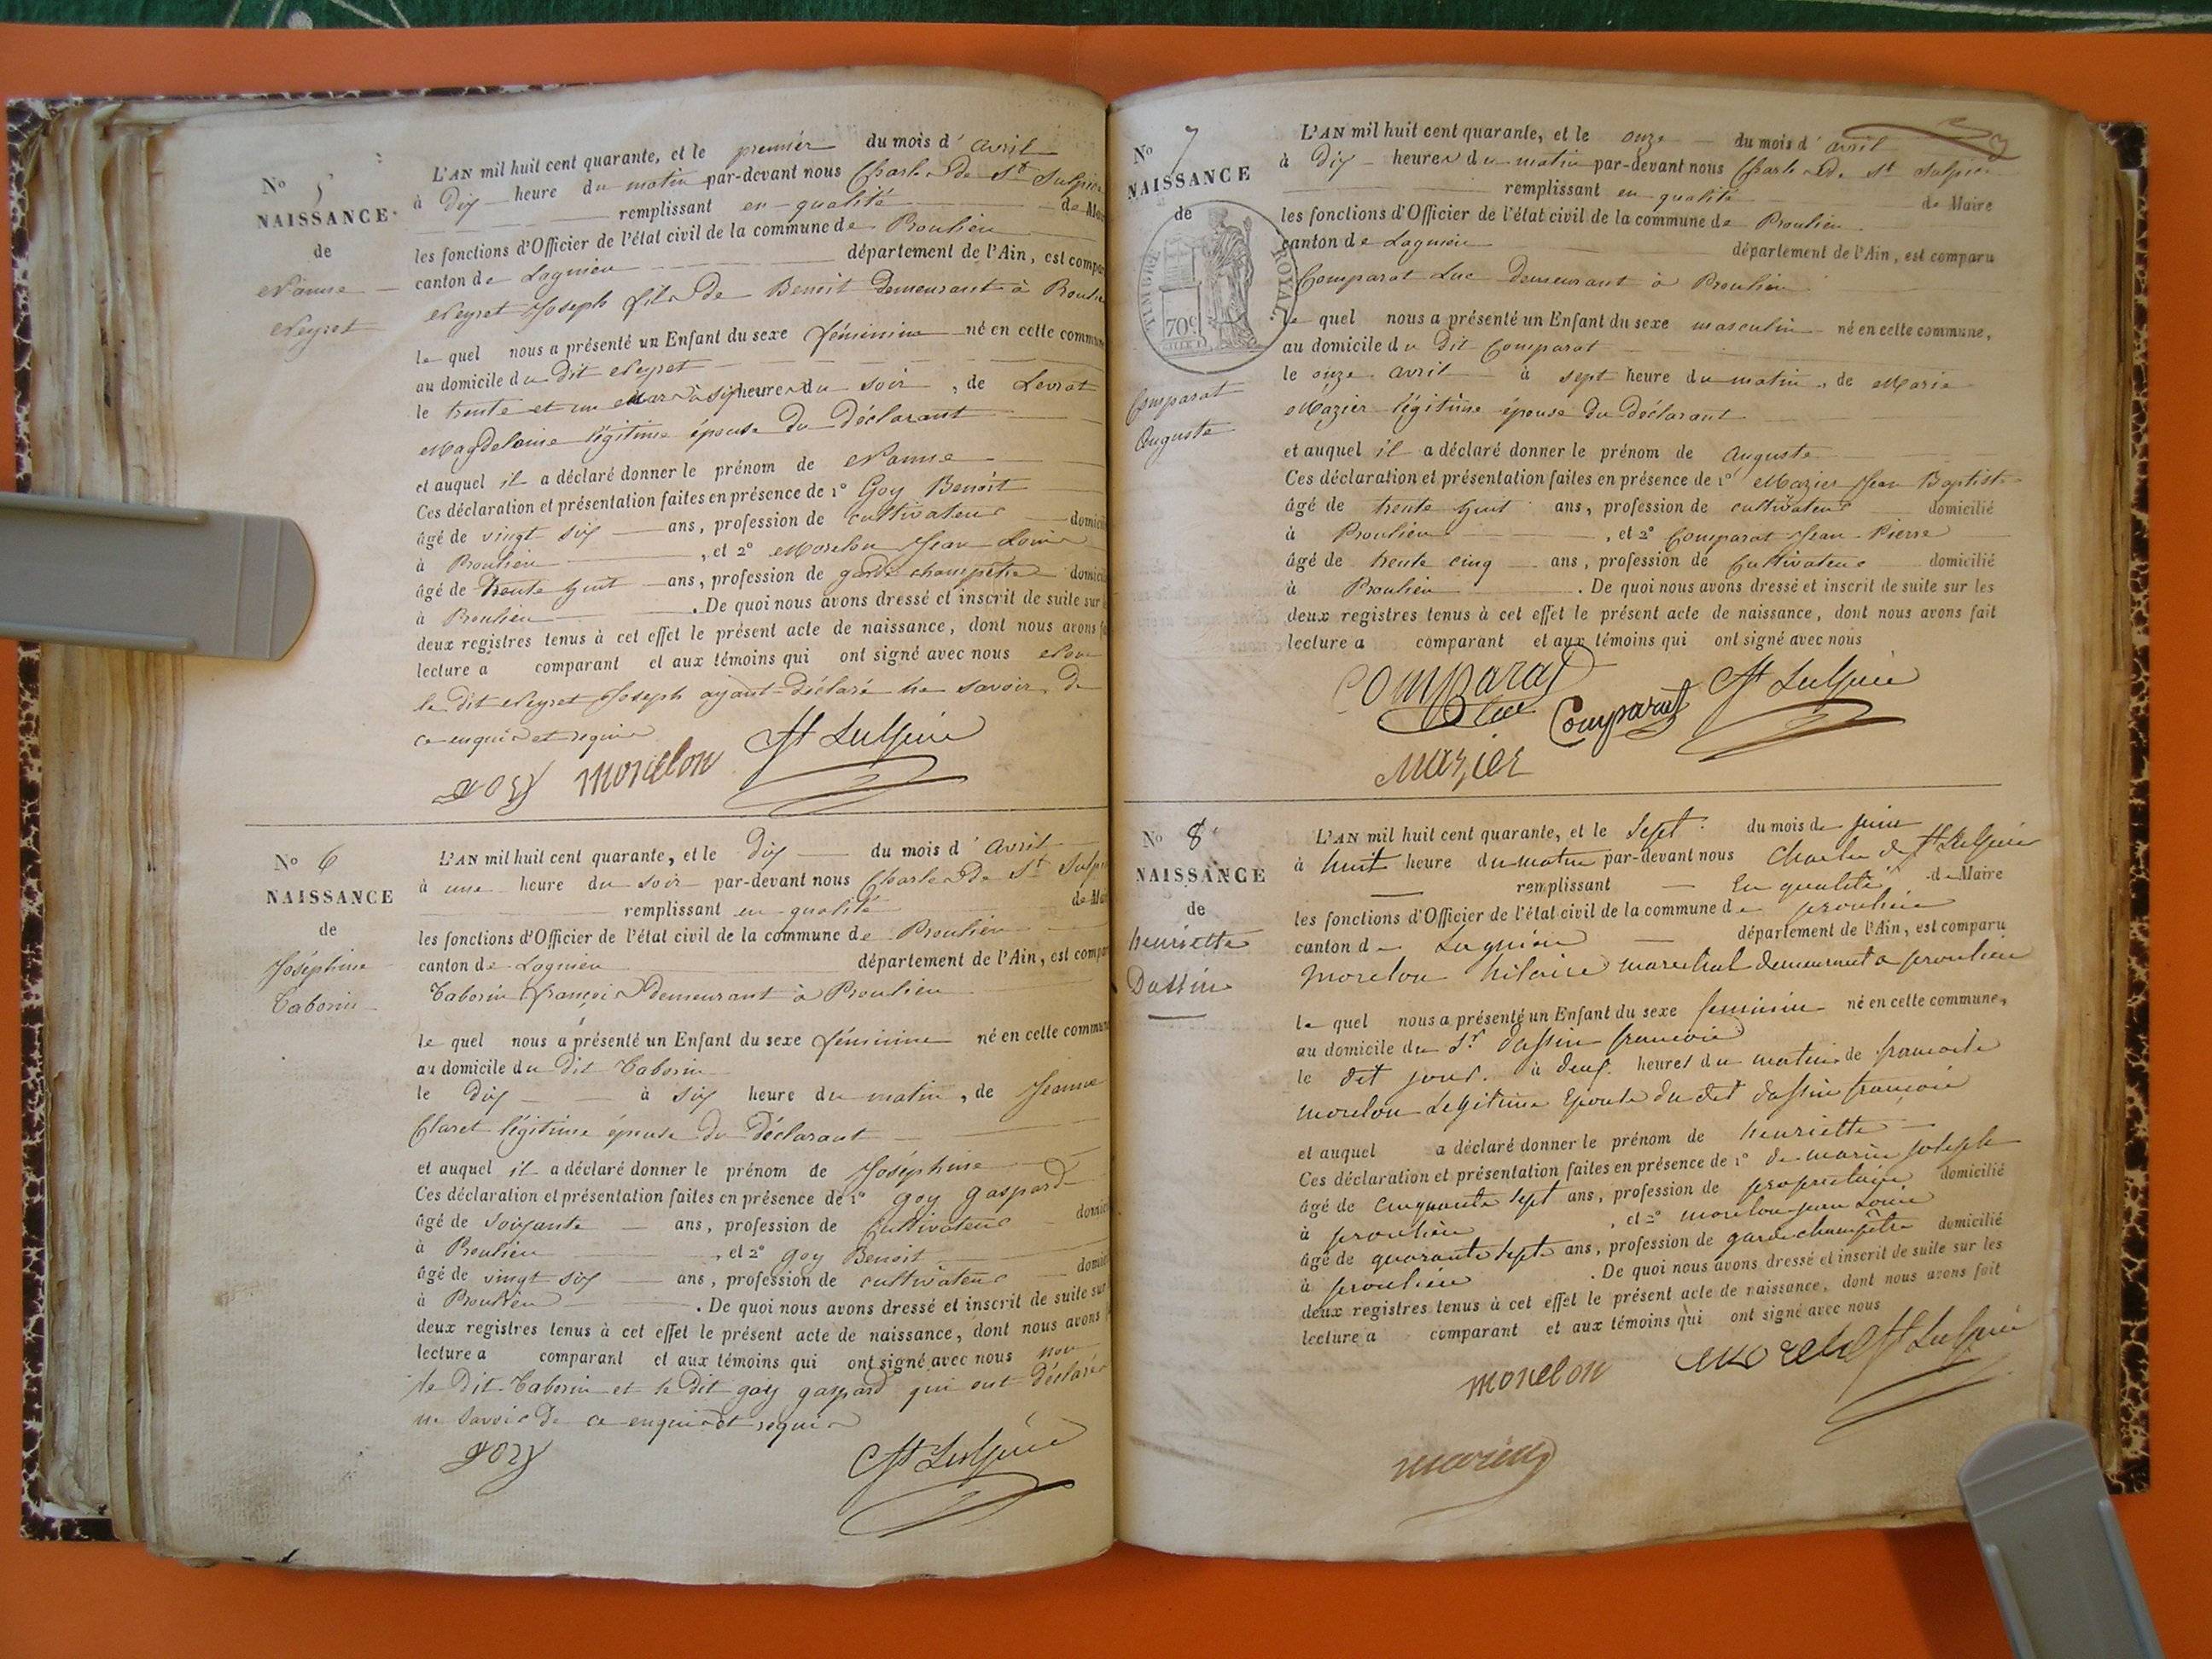 N° 5
NAISSANCE
de
Nanne
Neyret
L'AN mil huit cent quarante, et le premier du mois d'avril
à dix heure du matin par-devant nous Charles De St Sulpice
remplissant en qualité de Mai
les fonctions d'Officier de l'état civil de la commune de Proulieu
canton de Lagnieu département de l'Ain, est compa
Neyret Joseph fils De Benoit Demeurant à Proulieu
le quel nous a présenté un Enfant du sexe féminine né en cette commun
au domicile du Dit Neyret
le trente et un Mars à six heures du soir, de Levrat
Magdeleine légitime épouse Du Déclarant
et auquel il a déclaré donner le prénom de Nanne
Ces déclaration et présentation faites en présence de 1° Goy Benoit
âgé de vingt six ans, profession de cultivateur domicili
à Proulieu, et 2° Morelon Jean Louis
âgé de trente huit ans, profession de garde champêtre domici
à Proulieu. De quoi nous avons dressé et inscrit de suite sur
deux registres tenus à cet effet le présent acte de naissance, dont nous avons f
lecture a comparant et aux témoins qui ont signé avec nous Non
le dit Neyret Joseph ayant Déclaré ne savoir De
ce enquis et requis
goy morelon St Sulpice
N° 6
NAISSANCE
de
Joséphine
Taborin
L'AN mil huit cent quarante, et le dix du mois d'avril
à une heure du soir par-devant nous Charles De St Sulp
remplissant en qualité de Mai
les fonctions d'Officier de l'état civil de la commune de Proulieu
canton de Lagnieu département de l'Ain, est compar
Taborin françois Demeurant à Proulieu
le quel nous a présenté un Enfant du sexe féminine né en cette commun
au domicile du Dit Taborin
le dix à six heure du matin, de Jeanne
Claret légitime épouse Du Déclarant
et auquel il a déclaré donner le prénom de Joséphine
Ces déclaration et présentation faites en présence de 1° goy gaspard
âgé de soixante ans, profession de Cultivateur domici
à Proulieu, et 2° goy Benoit
âgé de vingt six ans, profession de cultivateur domici
à Proulieu. De quoi nous avons dressé et inscrit de suite sur
deux registres tenus à cet effet le présent acte de naissance, dont nous avons
lecture a comparant et aux témoins qui ont signé avec nous non
le Dit Taborin et le Dit goy gaspard qui ont Déclaré
ne savoir De ce enquis et requis
goy St Sulpice
N° 7
NAISSANCE
de
TIMBRE ROYAL
70c
Comparat
Auguste
L'AN mil huit cent quarante, et le onze du mois d'avril
à Dix heures du matin par-devant nous Charles De St Sulpice
remplissant en qualité de Maire
les fonctions d'Officier de l'état civil de la commune de Proulieu
canton de Lagnieu département de l'Ain, est comparu
Comparat Luc Demeurant à Proulieu
le quel nous a présenté un Enfant du sexe masculin né en cette commune,
au domicile du Dit Comparat
le onze avril à sept heure du matin, de Marie
Mazier légitime épouse Du Déclarant
et auquel il a déclaré donner le prénom de Auguste
Ces déclaration et présentation faites en présence de 1° Mazier Jean Baptiste
âgé de trente huit ans, profession de cultivateur domicilié
à Proulieu, et 2° Comparat Jean-Pierre
âgé de trente cinq ans, profession de Cultivateur domicilié
à Proulieu. De quoi nous avons dressé et inscrit de suite sur les
deux registres tenus à cet effet le présent acte de naissance, dont nous avons fait
lecture a comparant et aux témoins qui ont signé avec nous
Comparat Luc Comparat St Sulpice
Mazier
N° 8
NAISSANCE
de
henriette
Dassin
L'AN mil huit cent quarante, et le Sept du mois de juin
à huit heure du matin par-devant nous Charles de St Sulpice
remplissant En qualité de Maire
les fonctions d'Officier de l'état civil de la commune de proulieu
canton de Lagnieu département de l'Ain, est comparu
morelon hilaire marechal demeurant a proulieu
le quel nous a présenté un Enfant du sexe feminin né en cette commune,
au domicile du Sr dassin francois
le dit jour à deux heures du matin de francoise
morelon Legitime Epouse du dit dassin françois
et auquel a déclaré donner le prénom de henriette
Ces déclaration et présentation faites en présence de 1° de marin joseph
âgé de cinquante sept ans, profession de proprietaire domicilié
à proulieu, et 2° morelon jean Louis
âgé de quarante sept ans, profession de garde champêtre domicilié
à proulieu. De quoi nous avons dressé et inscrit de suite sur les
deux registres tenus à cet effet le présent acte de naissance, dont nous avons fait
lecture a comparant et aux témoins qui ont signé avec nous
morelon St Sulpice
marin